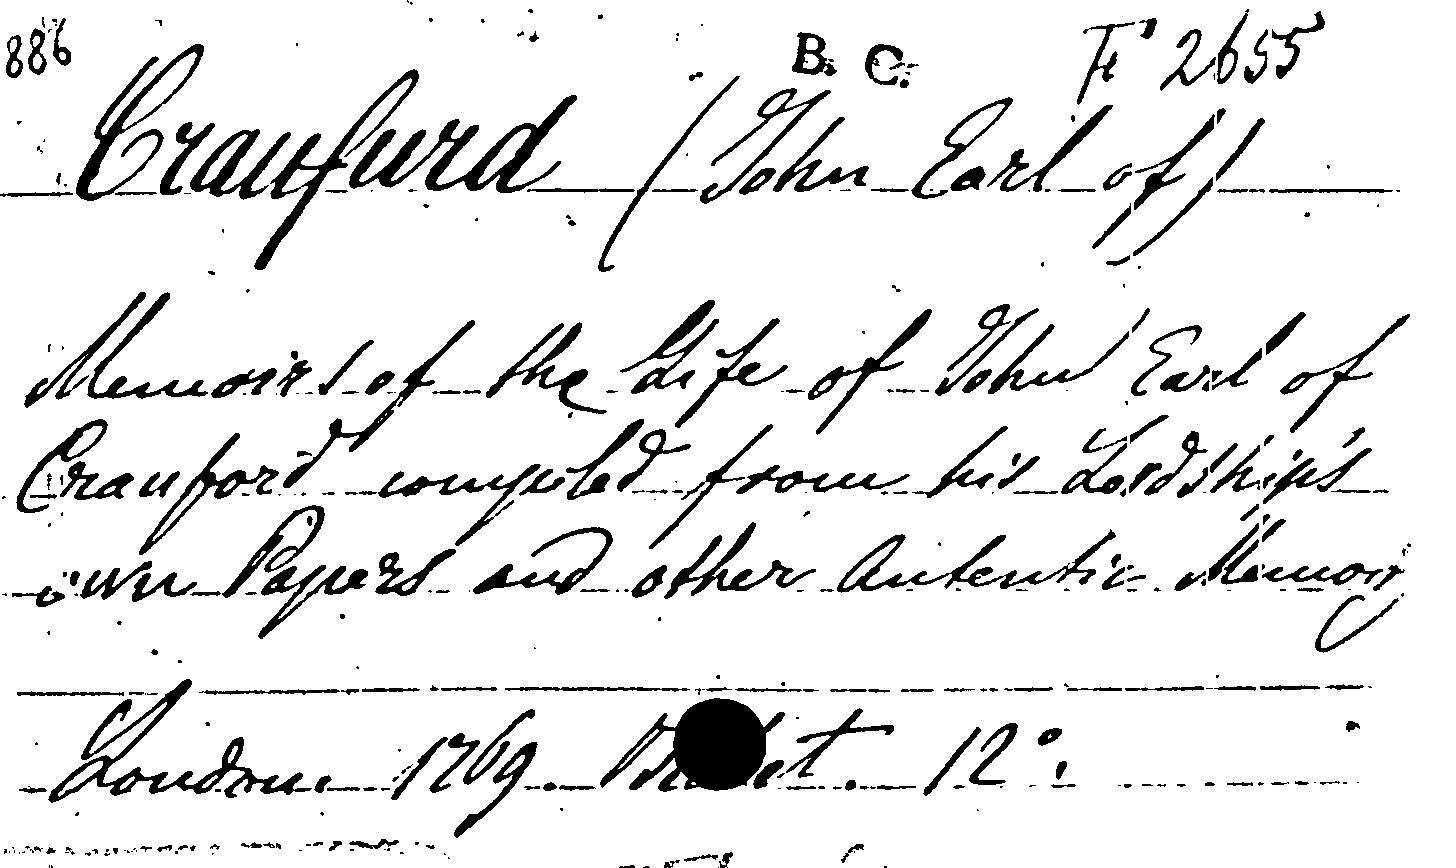 886 B. C. F 2655
Craufurd (John Earl of)
Memoirs of the Life of John Earl of
Crauford compiled from his Lordship's
own Papers and other Autentic Memoirs
London. 1769. 12°.